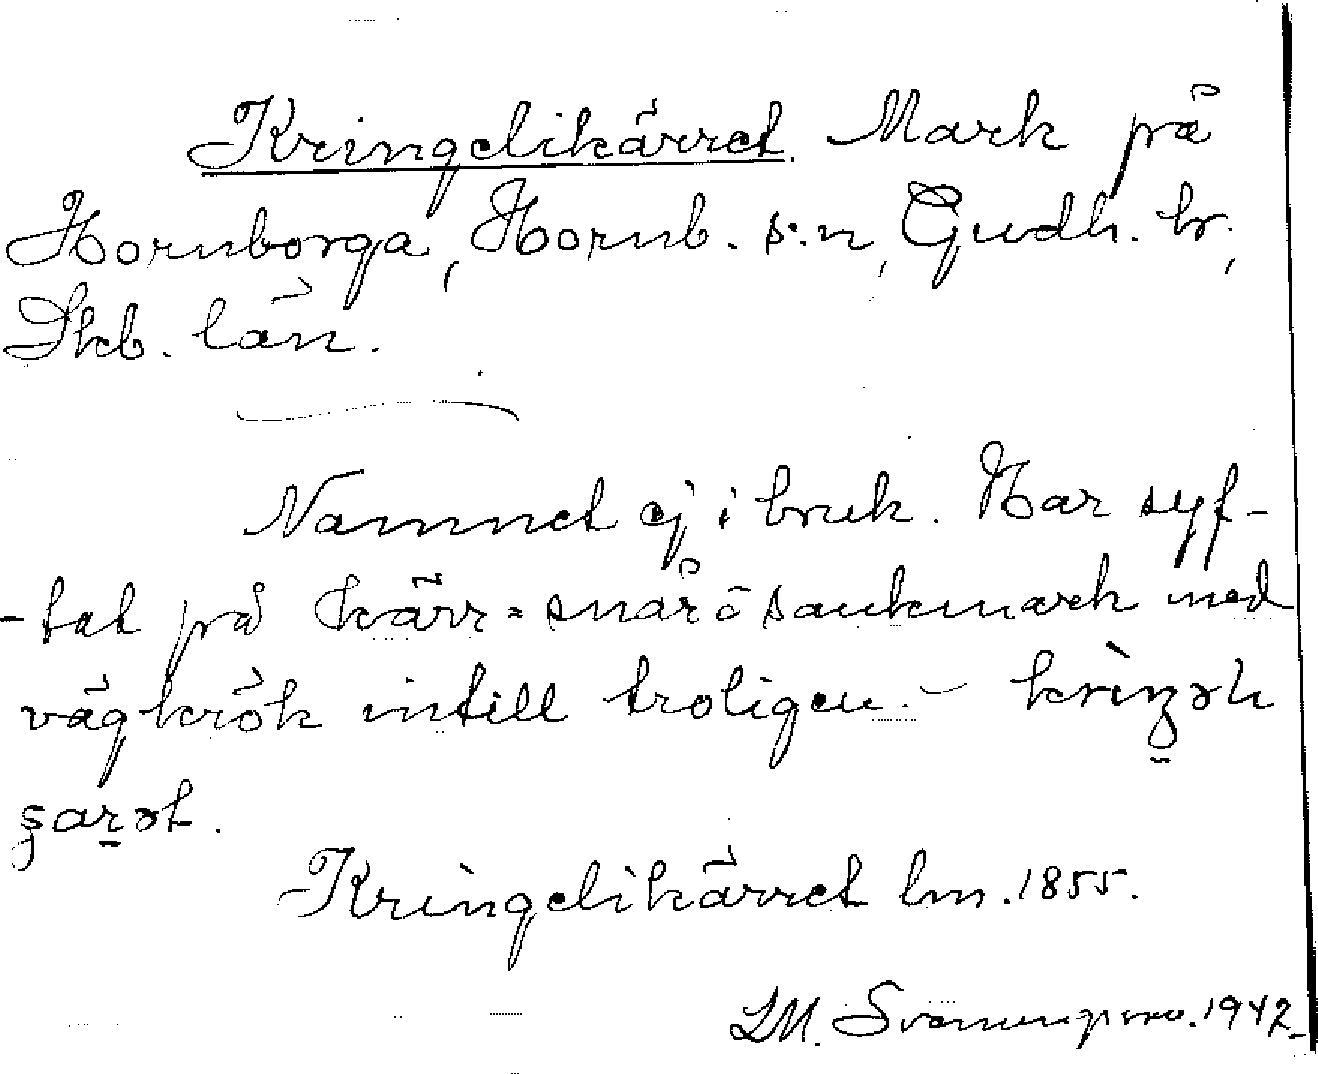 Kringelikärret. Mark på
Hornborga, Hornb. s:n, Gudh. hr,
Skb. län.
Namnet ej i bruk. Har syf-
-tat på kärr= snår ö sankmark med
vägkrök intill troligen. -
Kringelikärret lm. 1855.
LM. Svanungsson. 1942